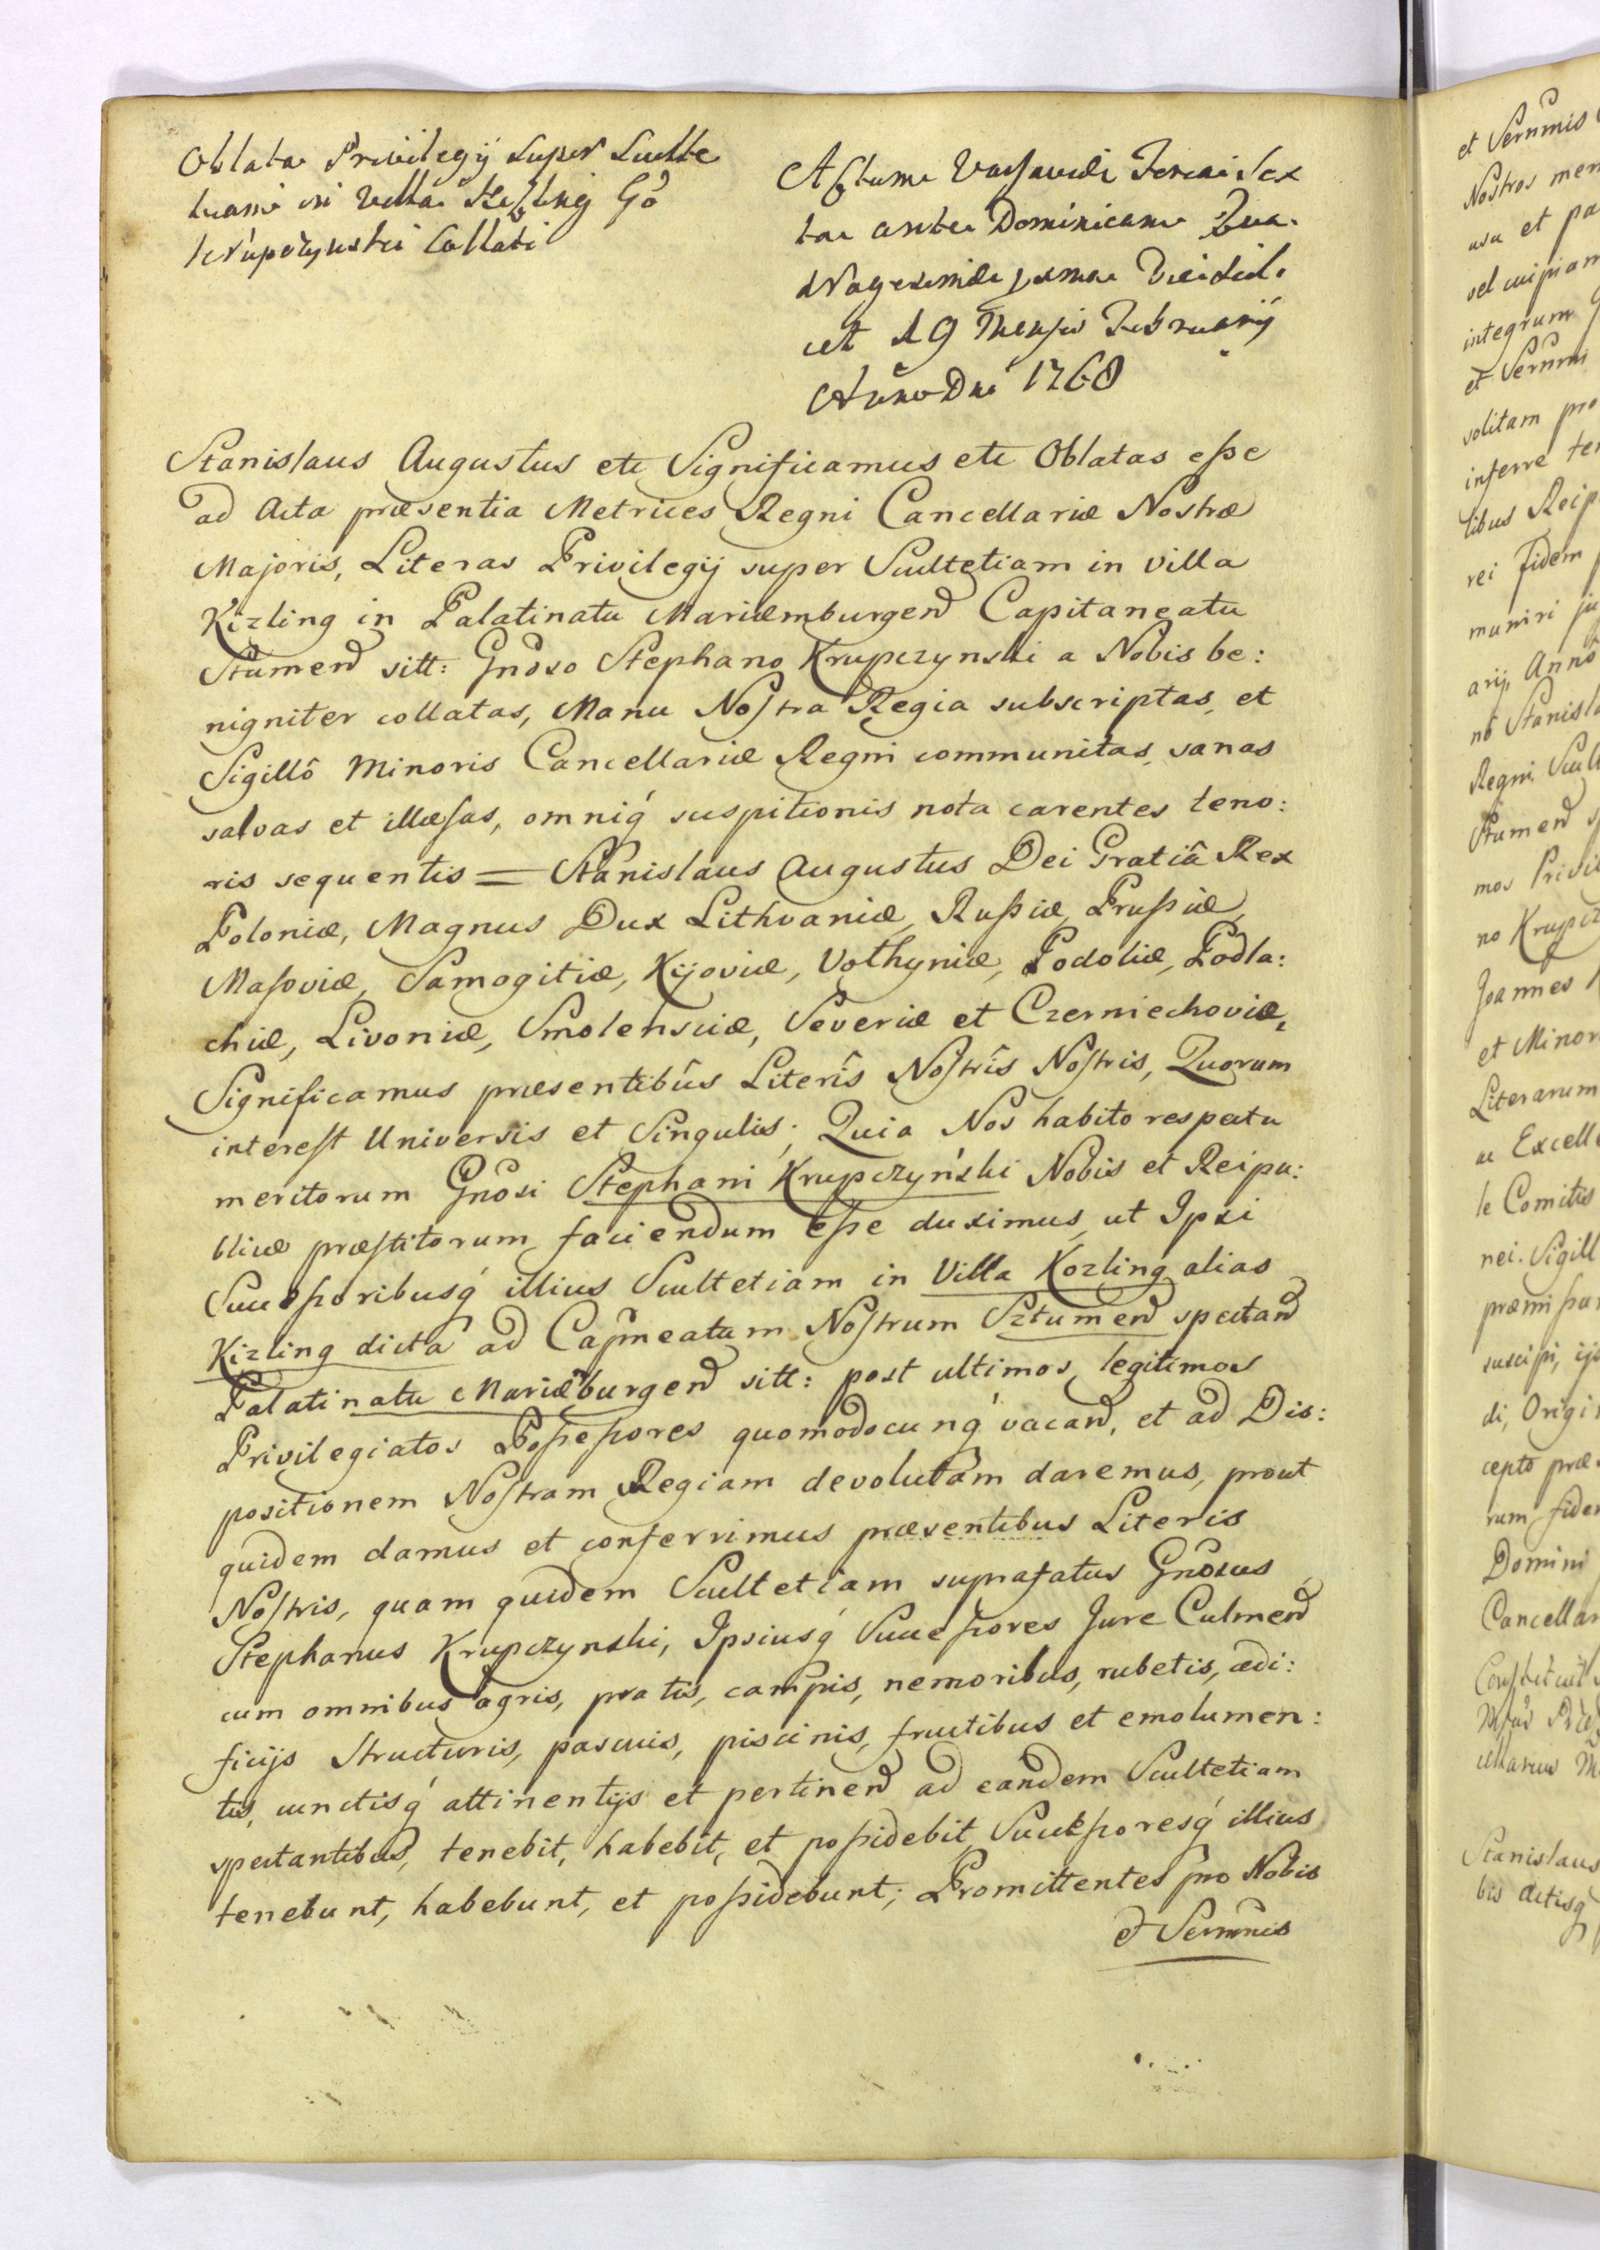 Oblata Privilegij super Sculte
tiam in Villa Kizling Gō
Krupczynski Collati
Actum Varsaviæ Feria Sex
ta ante Dominicam Qua.
dragesimæ prima Videlic.
et 19 Mensis Februarij
Anno Dni 1768
Stanislaus Augustus etc Significamus etc Oblatas esse
ad Acta præsentia Metrices Regni Cancellariæ Nostræ
Majoris, Literas Privilegij super Scultetiam in villa
Kizling in Palatinatu Mariæmburgen Capitaneatu
Stumen sitt: Gnoso Stephano Krupczynski a Nobis be:
nigniter collatas, Manu Nostra Regia subscriptas, et
Sigillô Minoris Cancellariæ Regni communitas, sanas
salvas et illæsas, omniq́ suspitionis nota carentes teno:
ris sequentis = Stanislaus Augustus Dei Gratiâ Rex
Poloniæ, Magnus Dux Lithvaniæ, Russiæ, Prussiæ,
Masoviæ, Samogitiæ, Kijoviæ, Volhyniæ, Podoliæ, Podla:
chiæ, Livoniæ, Smolensciæ, Severiæ et Czerniechoviæ,
Significamus præsentibûs Literîs Nostrîs Nostris, Quorum
interest Universis et Singulis; Quia Nos habito respectu
meritorum Gnosi Stephani Krupczyński Nobis et Reipu:
blicæ præstitorum faciendum esse duximus, ut Ipsi
Successoribusq́ illius Scultetiam in Villa Kozling alias
Kizling dicta ad Capneatum Nostrum Sztumen spectan
Palatinatu Mariæburgen sitt: post ultimos, legitimos
Privilegiatos Possessores quomodocunq́ vacan, et ad Dis:
positionem Nostram Regiam devolutam daremus, prout
quidem damus et conferrimus præsentibus Literis
Nostris, quam quidem Scultetiam suprafatus Gnosus
Stephanus Krupczynski, Ipsiusq́ Successores Jure Culmen
cum omnibus agris, pratis, campis, nemoribus, rubetis, ædi:
ficijs Structuris, pascuis, piscinis, fructibus et emolumen:
tis, cunctisq́ attinentijs et pertinen ad eandem Scultetiam
spectantibus, tenebit, habebit, et possidebit, Successoresq́ illius
tenebunt, habebunt, et possidebunt; Promittentes pro Nobis
et Sernmis
et Sernmis
Nostros
usu et
vel cuipiam
integrum
et Sernmi
solitam pro
inferre
tibus Reip
rei fidem
muniri
arij, Anno
nô
Regni
Stumen
mos
no
Joannes
et Minor
Literarum
ac
le Comitis
nei. Sigill
suscipi,
di,
cepto
rum
Domini
Cancellar
Stanislaus
bis Actisq́